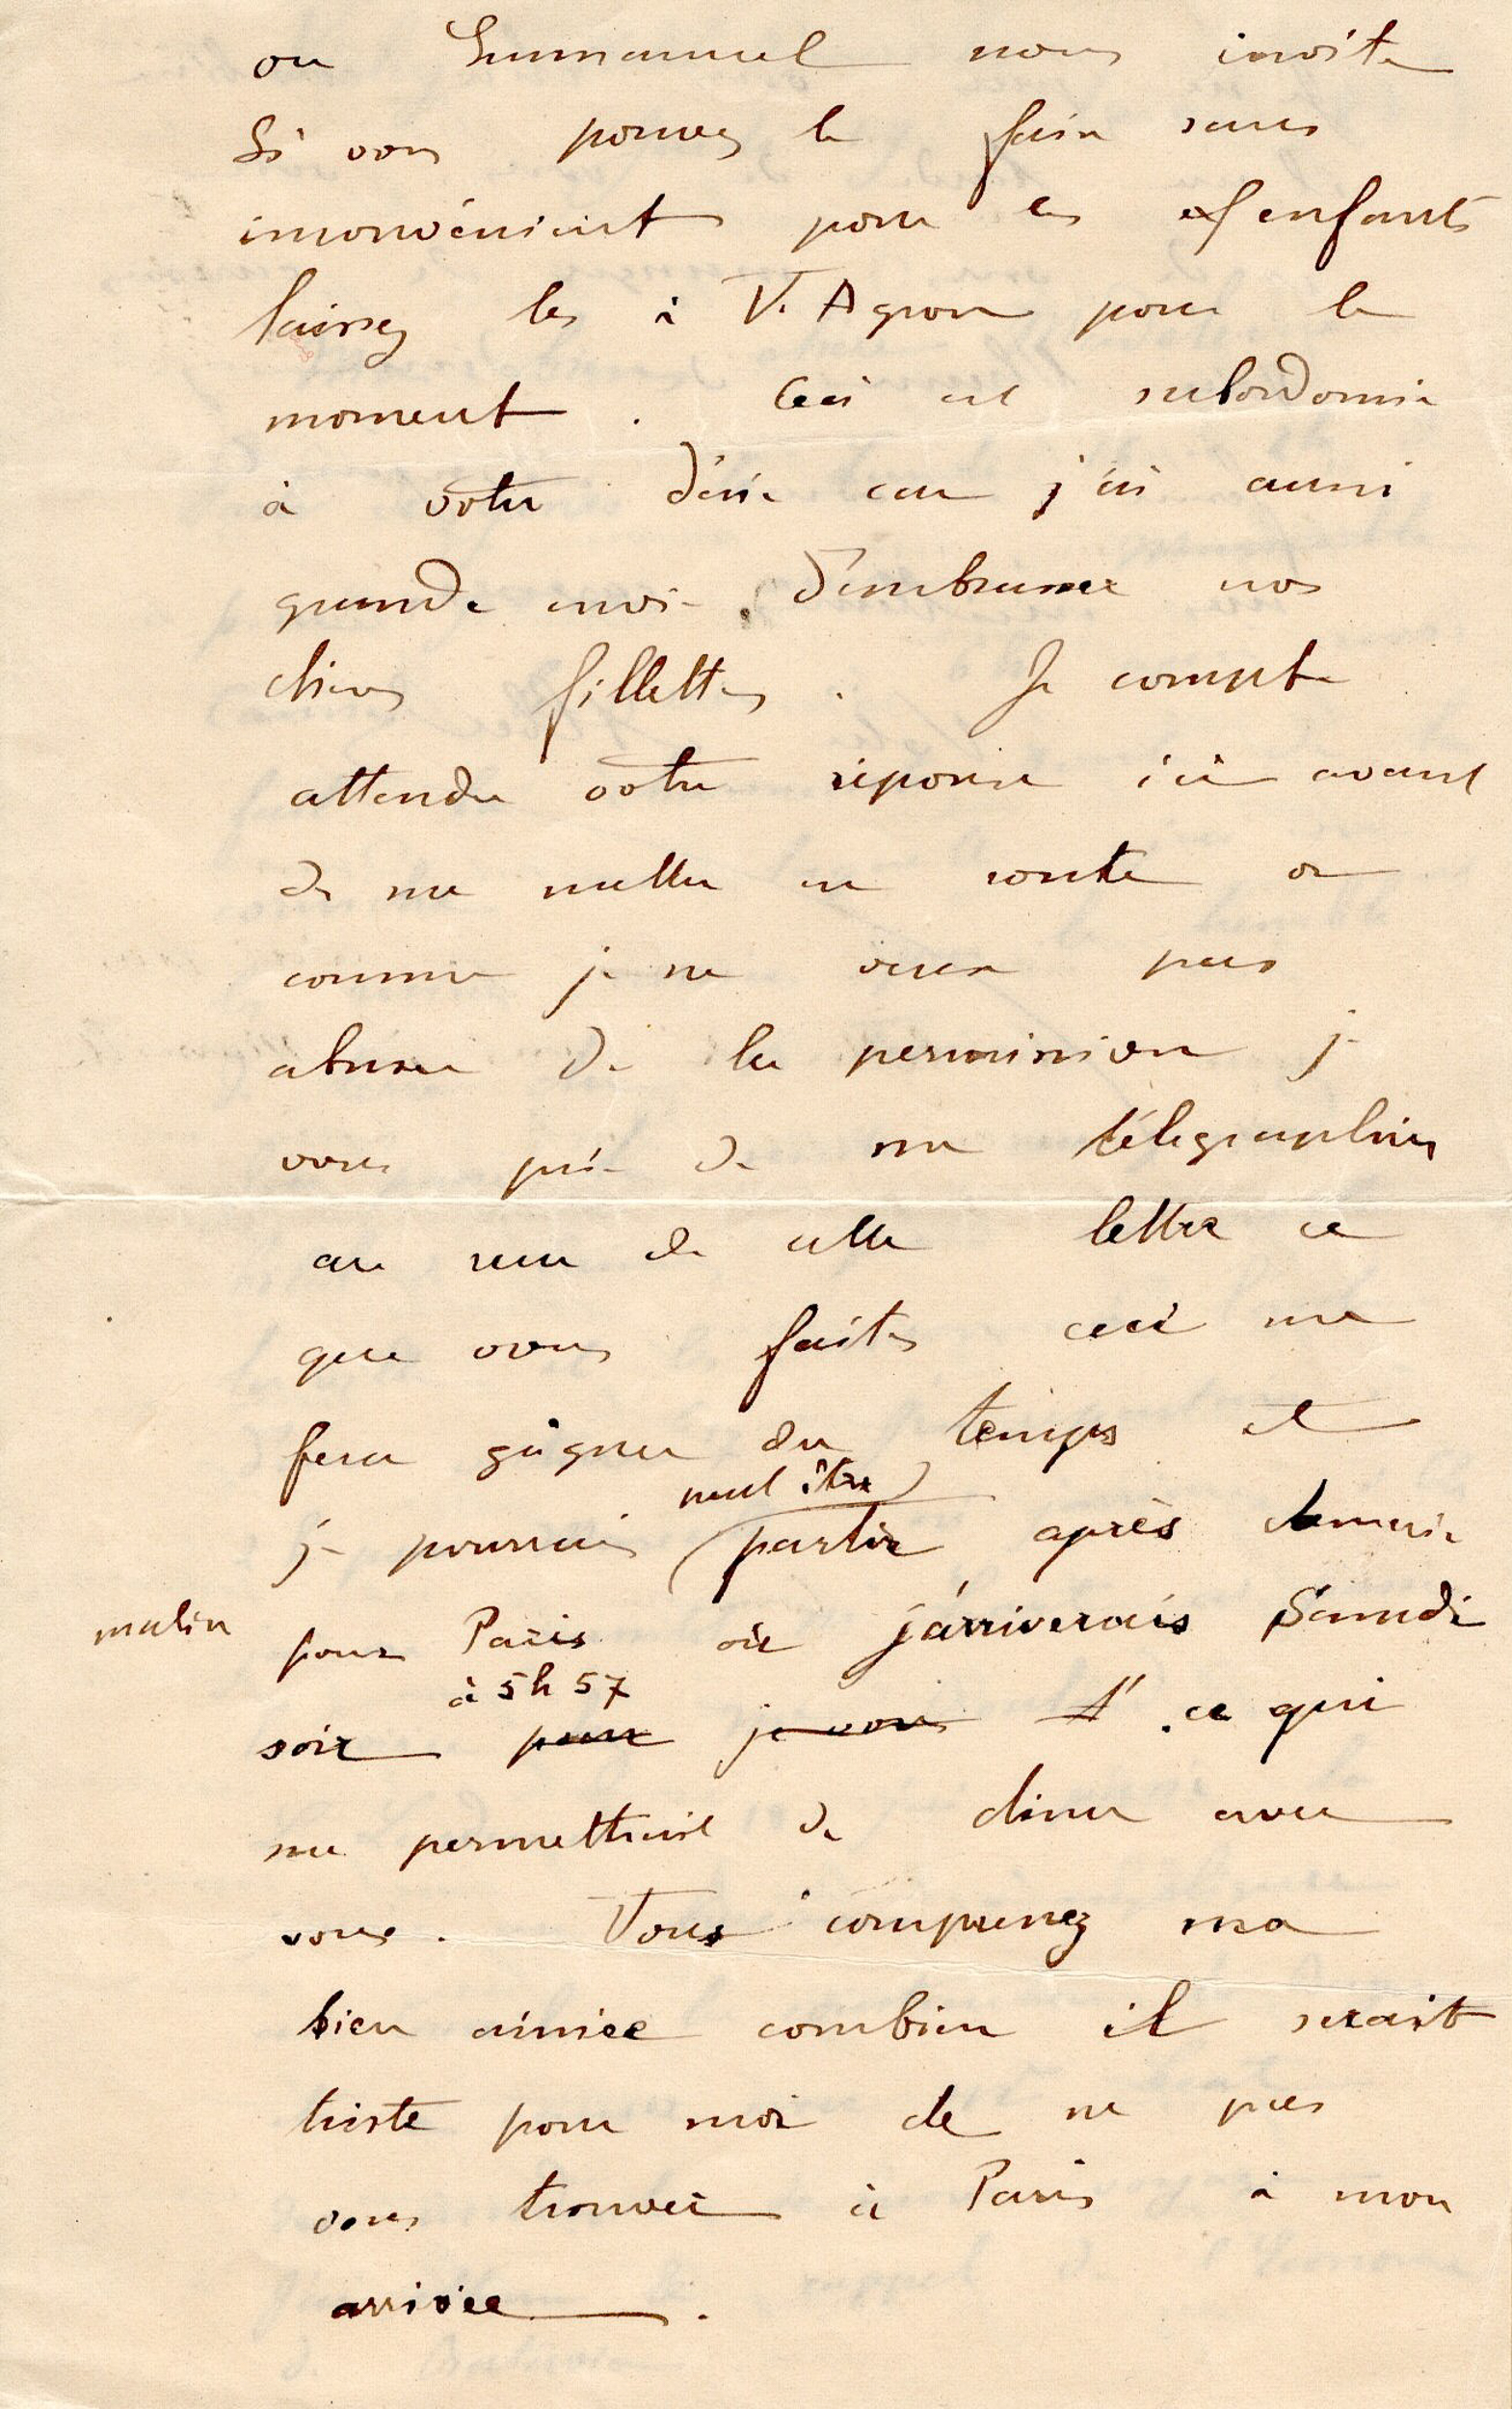 ou Emmanuel nous invite
Si vous pouvez le faire sans
inconvénient pour les enfants
laissez les à V. Agron pour le
moment. Ceci est subordonné
à votre désir car j'ai aussi
grande envie d'embrasser nos
chères fillettes. Je compte
attendre votre réponse ici avant
de me mettre en route or
comme je ne veux pas
abuser de la permission je
vous prie de me télégraphier
au reçu de cette lettre ce
que vous faites ceci me
fera gâgner du temps et
peut être
je pourrais partir après demain
matin pour Paris où j'arriverais Samedi
à 5h 57
soir pour je vous ce qui
me permettrait de diner avec
vous. Vous comprenez ma
bien aimée combien il serait
triste pour moi de ne pas
vous trouver à Paris à mon
arrivée.